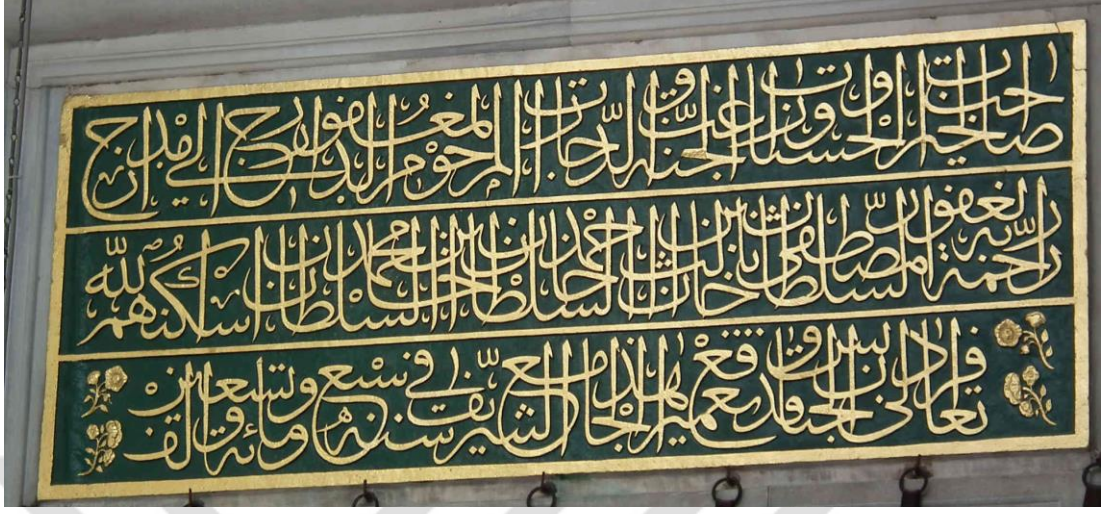 صاحب الخيرات والحسنات وراغب الجنة والدرجات المرحوم المغفور الدارج الى مدارج
رحمة ربه الغفور السلطان مصطفى خان الثالث ابن السلطان احمد خان ابن السلطان محمد خان اسكنهم الله
تعالى فى فراديس الجنان وقد وقع تعمير هذا الجامع الشريف فى سنة سبع وتسعين ومائة والف